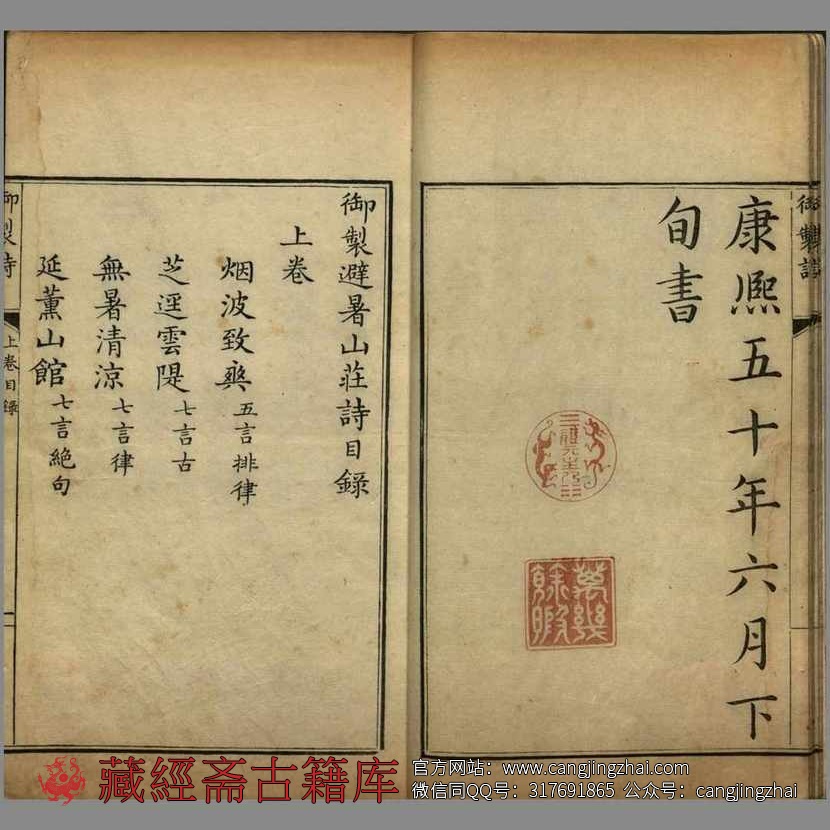 御製詩
康熙五十年六月下
旬書
體元主人
萬幾餘暇
御製避暑山莊詩目錄
上卷
烟波致爽 五言排律
芝逕雲隄 七言古
無暑清涼 七言律
延薰山館 七言絕句
御製詩 上卷目錄
藏經斋古籍库
官方网站：www.cangjingzhai.com
微信同QQ号：317691865 公众号：cangjingzhai